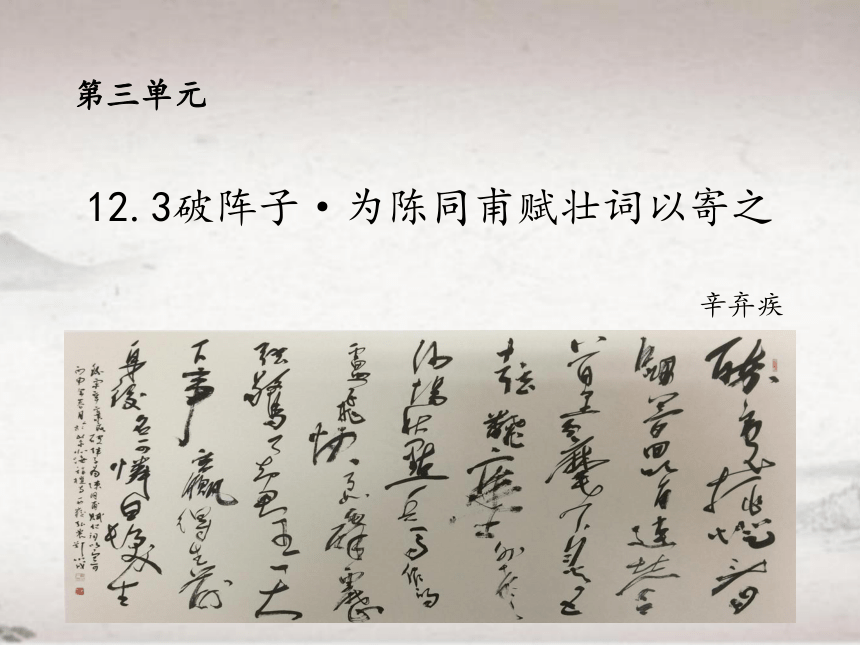 第三单元
12.3破阵子·为陈同甫赋壮词以寄之
辛弃疾
醉里挑灯看
劍夢回吹角連營
八百里分麾下炙五
十弦翻塞外
沙場秋點兵馬作的
盧飛快弓如霹靂
弦驚了却君王天
下事贏得生前
身後名可憐白髮生